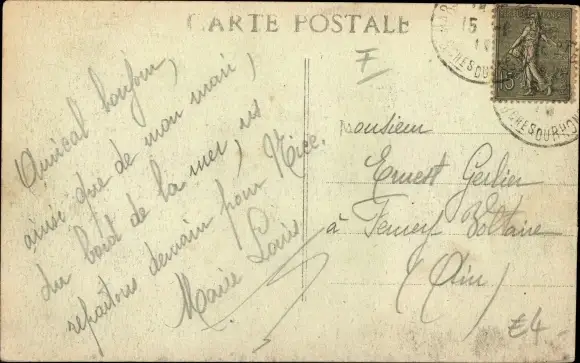 CARTE POSTALE
Amical bonjour,
ainsi que de mon mari,
du bord de la mer, ns
repartons demain pour Nice.
Marie Louise
F
Monsieur
Ernest Gerlier
à Ferney Voltaire
(Ain)
£4-
15